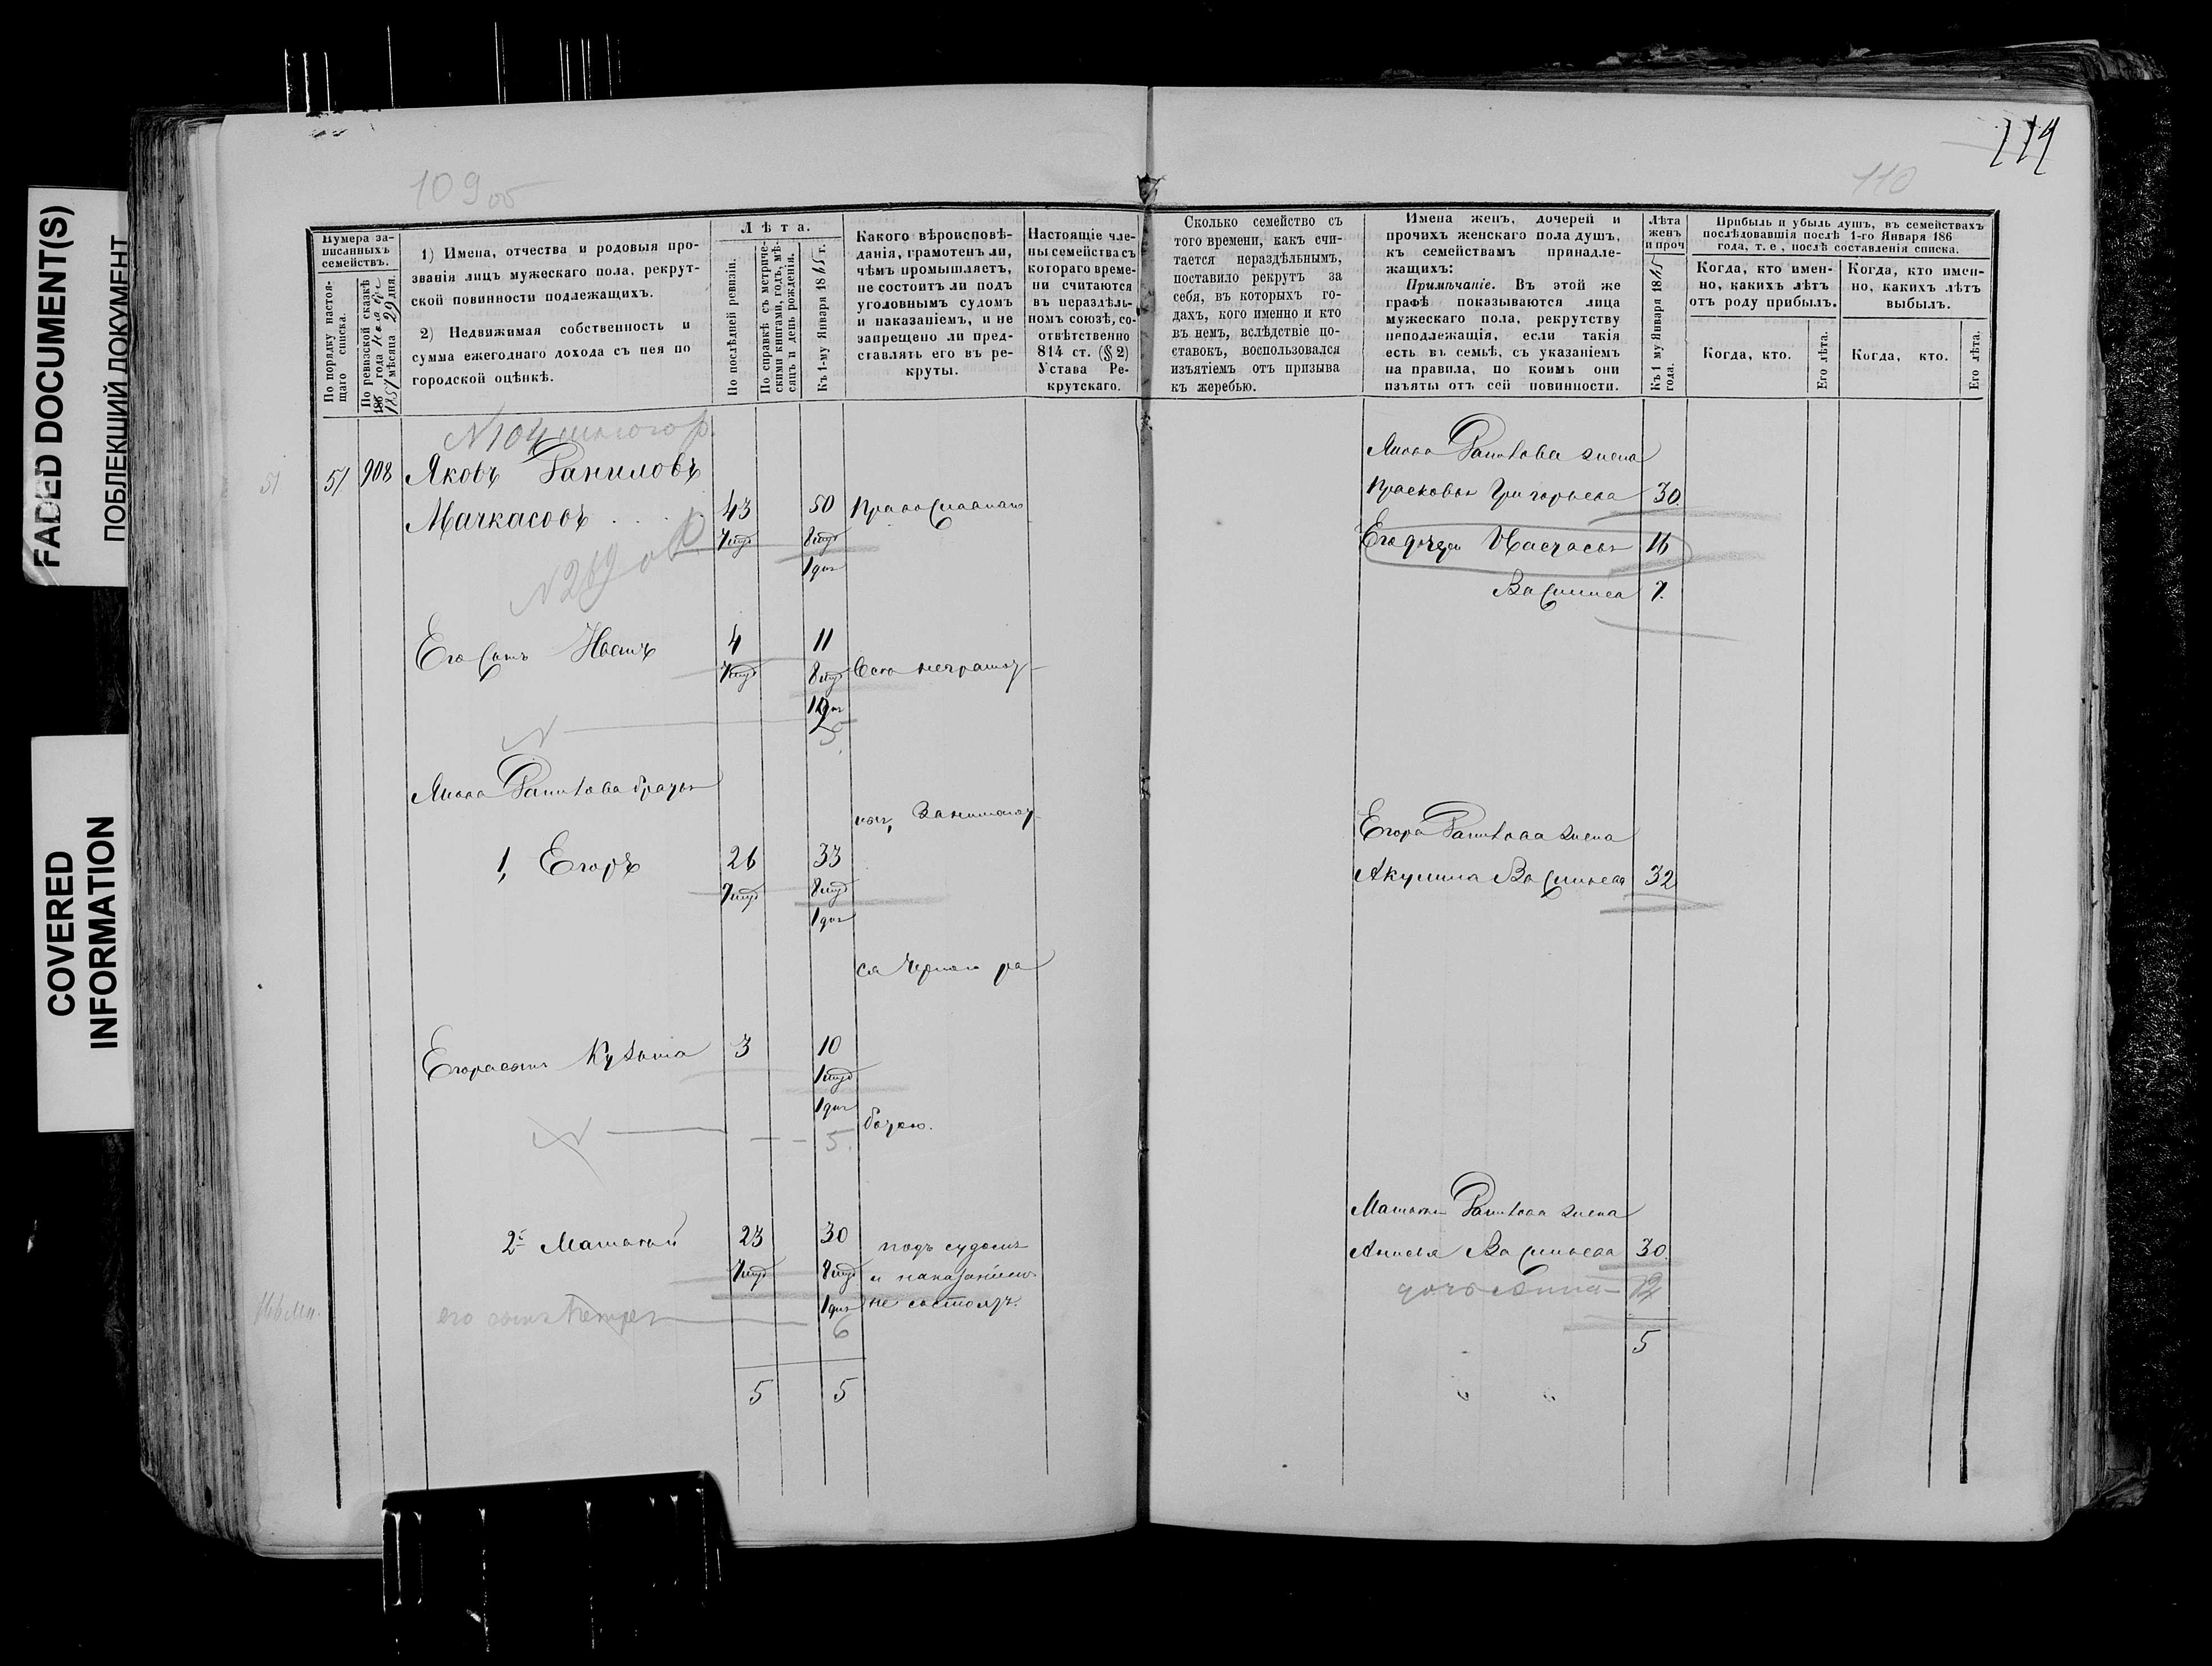 FADED DOCUMENT(S)
ПОБЛЕКШИЙ ДОКУМЕНТ
COVERED
INFORMATION
109 об
Нумера за-
писанныхъ
семействъ.
По порядку настоя-
щаго списка.
По ревизской сказкѣ
186 года
1857 мѣсяца 29 дня.
1) Имена, отчества и родовыя про-
званія лицъ мужескаго пола, рекрут-
ской повинности подлежащихъ.
2) Недвижимая собственность и
сумма ежегоднаго дохода съ нея по
городской оцѣнкѣ.
Лѣта.
По послѣдней ревизіи.
По справкѣ съ метриче-
скими книгами, годъ, мѣ-
сяцъ и день рожденія.
Къ 1-му Января 1865 г.
Какого вѣроисповѣ-
данія, грамотенъ ли,
чѣмъ промышляетъ,
не состоитъ ли подъ
уголовнымъ судомъ
и наказаніемъ, и не
запрещено ли пред-
ставлять его въ ре-
круты.
Настоящіе чле-
ны семейства съ
котораго време-
ни считаются
въ нераздѣль-
номъ союзѣ, со-
отвѣтственно
814 ст. (§ 2)
Устава Ре-
крутскаго.
51
51
908
Яковъ Даниловъ
Мачкасовъ
43
50
Православнаго
№ 269
Его сынъ Иванъ
4
11
Всѣ неграмот-
Якова Данилова братья
ны, Занимают-
1, Егоръ
26
33
ся Черною ра
Егора сынъ Кузьма
3
10
5.
ботою.
2й Матвѣй
23
30
подъ судомъ
и наказаніемъ
не состоятъ.
его сынъ Петръ
6
5
5
114
110
Сколько семейство съ
того времени, какъ счи-
тается нераздѣльнымъ,
поставило рекрутъ за
себя, въ которыхъ го-
дахъ, кого именно и кто
въ немъ, вслѣдствіе по-
ставокъ, воспользовался
изъятіемъ отъ призыва
къ жеребью.
Имена женъ, дочерей и
прочихъ женскаго пола душъ,
къ семействамъ принадле-
жащихъ:
Примѣчаніе. Въ этой же
графѣ показываются лица
мужескаго пола, рекрутству
неподлежащія, если такія
есть въ семьѣ, съ указаніемъ
на правила, по коимъ они
изъяты отъ сей повинности.
Лѣта
женъ
и проч
Къ 1 му Января 1865
года.
Прибыль и убыль душъ, въ семействахъ
послѣдовавшія послѣ 1-го Января 186
года, т. е, послѣ составленія списка.
Когда, кто имен-
но, какихъ лѣтъ
отъ роду прибылъ.
Когда, кто имен-
но, какихъ лѣтъ
выбылъ.
Когда, кто.
Его лѣта.
Когда, кто.
Его лѣта.
Якова Данилова жена
Прасковья Григорьева 30.
Его дочери Настасья 16
Василиса 7.
Егора Данилова жена
Акулина Васильева 32
Матвѣя Данилова жена
Анисья Васильева 30.
дочь Анна
5